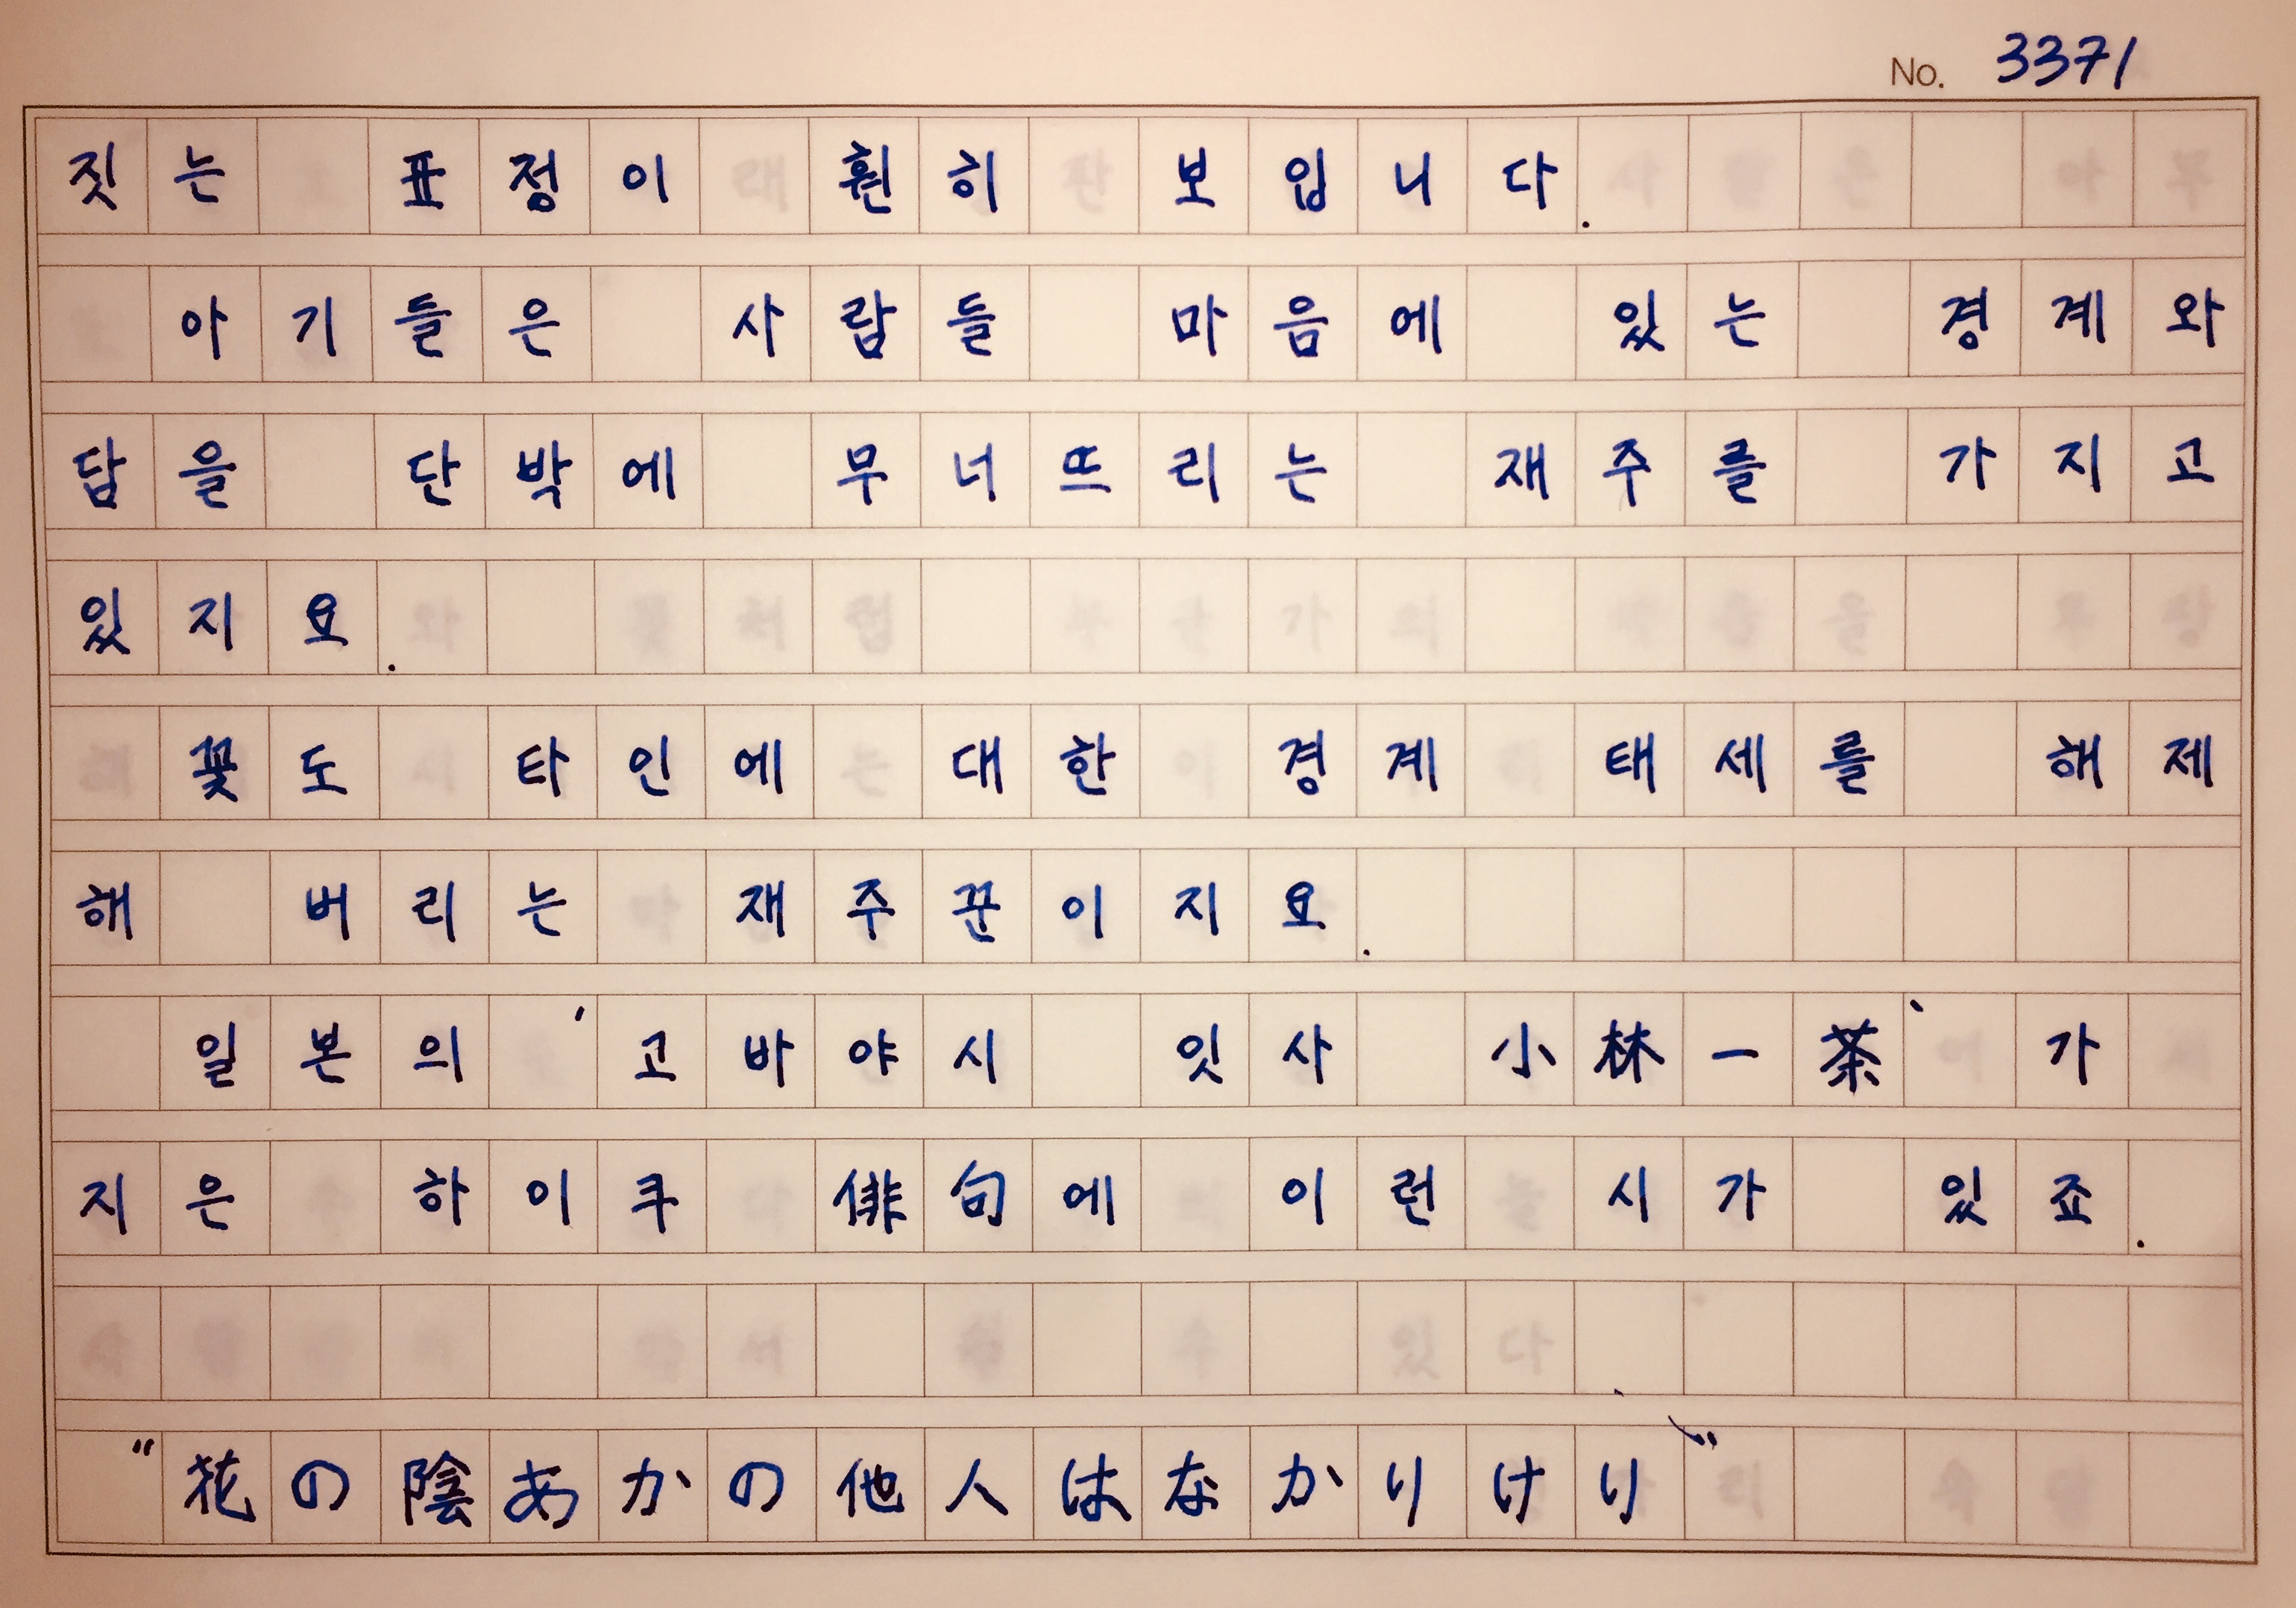 No. 3371
짓는 표정이 훤히 보입니다.
아기들은 사람들 마음에 있는 경계와
담을 단박에 무너뜨리는 재주를 가지고
있지요.
꽃도 타인에 대한 경계 태세를 해제
해 버리는 재주꾼이지요.
일본의 '고바야시 잇사 小林一茶'가
지은 하이쿠 俳句에 이런 시가 있죠.
"花の陰あかの他人はなかりけり"